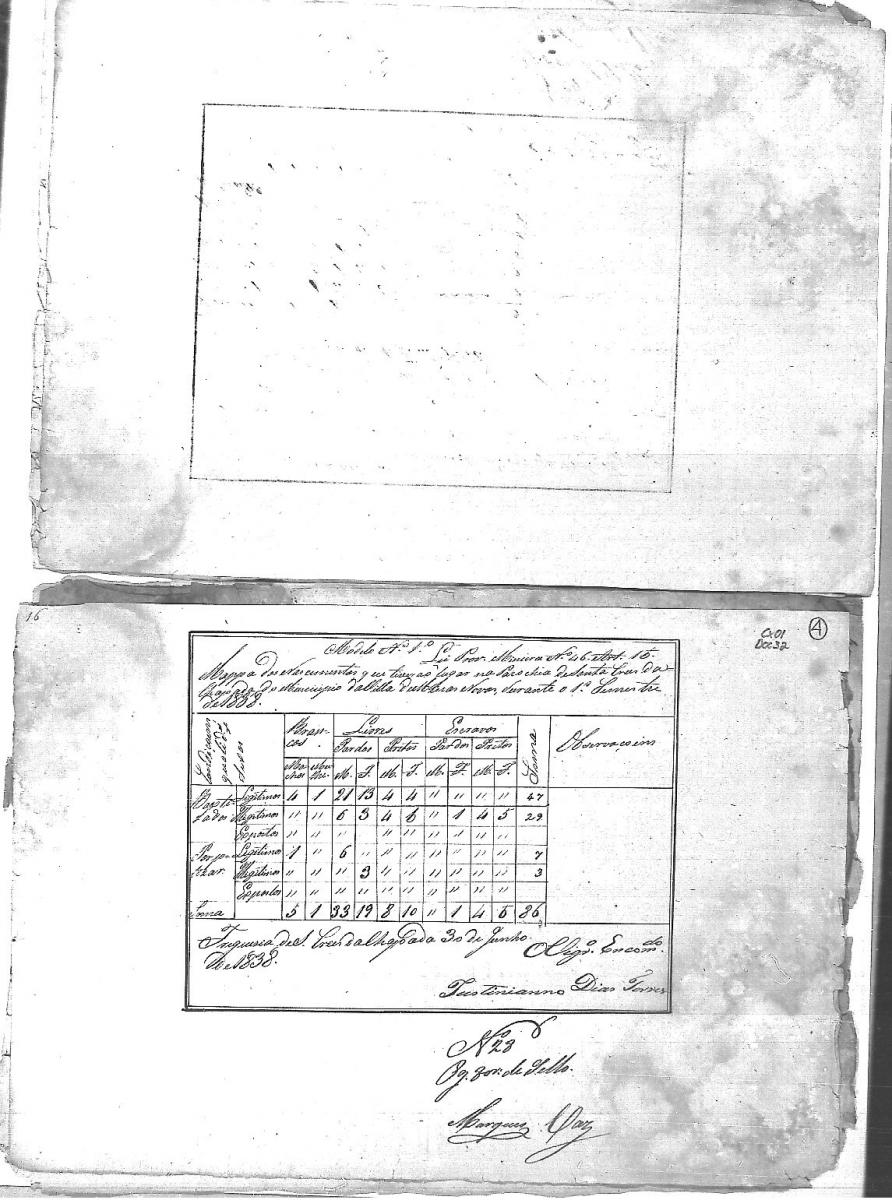 16
Cx01
Doc32
4
Modelo Nº. 1.º Lei Prov. Mineira Nº. 46. Art. 15.
Mappa dos Nascimentos que tiverão lugar na Parochia de Santa Cruz da
Chapada do Municipio da Villa de Minas Novas, durante o 1.º Semestre
de 1838.
Brancos. Livres Escravos Somma Observaçoens
Pardos Pretos Pardos Pretos
Machos M. F. M. F. M. F. M. F.
Baptizados Legitimos 4 1 21 13 4 4 " " " " 47
Illegitimos " " 6 3 4 6 " 1 4 5 29
Expostos " " " " " " " " "
Por baptizar Legitimos 1 " 6 " " " " " " " 7
Illegitimos " " " 3 " " " " " " 3
Expostos " " " " " " " " " "
Soma 5 1 33 19 8 10 " 1 4 5 86
Freguesia de S. Cruz da Chapada 30 de Junho
de 1838.
O Vigrº. Encomdo.
Justinianno Dias Torres
Nº 28
Pg. de Sello.
Marques Vaz